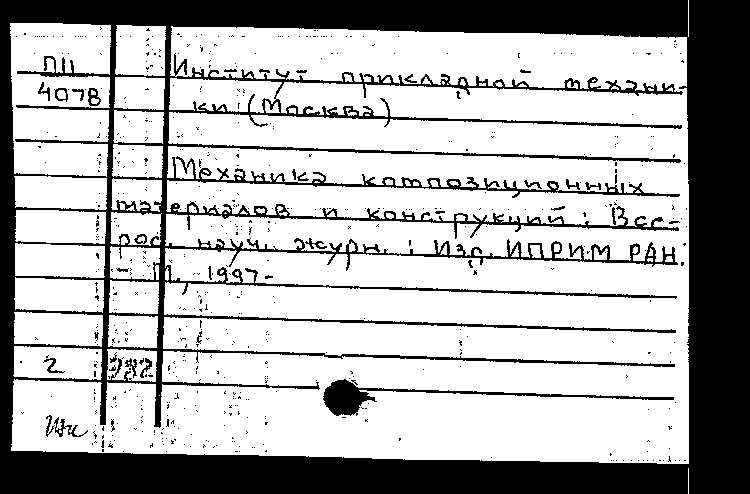 П11
4078
Институт прикладной механи-
ки (Москва)
Механика композиционных
материалов и конструкций : Все-
рос. науч. журн. : Изд. ИПРИМ РАН.
- М., 1997-
2 982